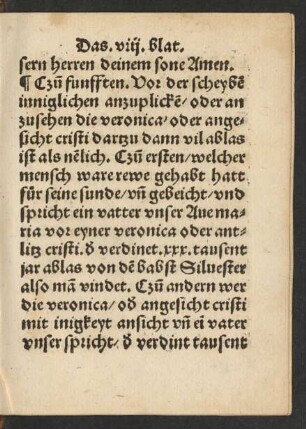 Das. viij. blat.
sern herren deinem sone Amen.
¶ Czū funfften. Vor der scheybē
inniglichen anzuplickē/ oder an
zusehen die veronica/ oder ange-
sicht cristi dartzu dann vil ablas
ist als nēlich. Czū ersten/ welcher
mensch ware rewe gehabt hatt
für seine sunde/ vn̄ gebeicht/ vnd
spricht ein vatter vnser Aue ma-
ria vor eyner veronica oder ant-
litz cristi. d̓ verdinet .xxx. tausent
jar ablas von dē babst Siluester
also mā vindet. Czū andern wer
die veronica/ od̓ angesicht cristi
mit inigkeyt ansicht vn̄ ei vater
vnser spricht/ d̓ verdint tausent